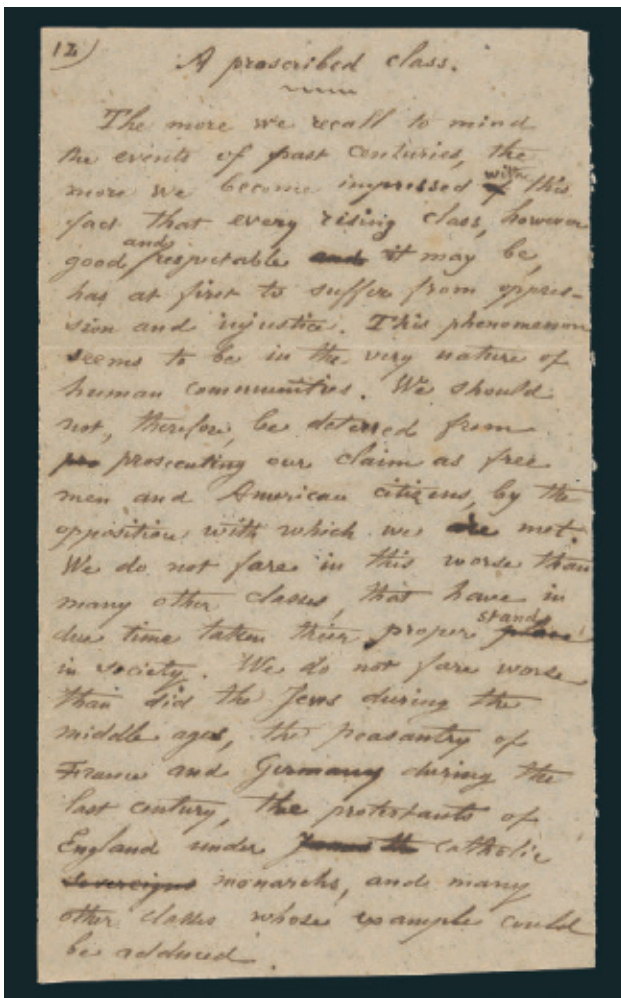 12)
A proscribed class.
The more we recall to mind
the events of past centuries, the
more we become impressed with this
fact that every rising class, however
good and respectable it may be,
has at first to suffer from oppres-
sion and injustice. This phenomenon
seems to be in the very nature of
human communities. We should
not, therefore, be deterred from
pro prosecuting our claim as free
men and American citizens, by the
opposition with which we are met.
We do not fare in this worse than
many other classes, that have in
due time taken thier proper stand
in society. We do not fare worse
than did the Jews during the
middle ages, the peasantry of
France and Germany during the
last century, the protestants of
England under catholic
sovereigns monarchs, and many
other classes whose example could
be adduced.